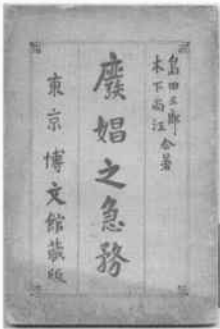 島田三郎
木下尚江 合著
廢娼之急務
東京 博文館蔵版